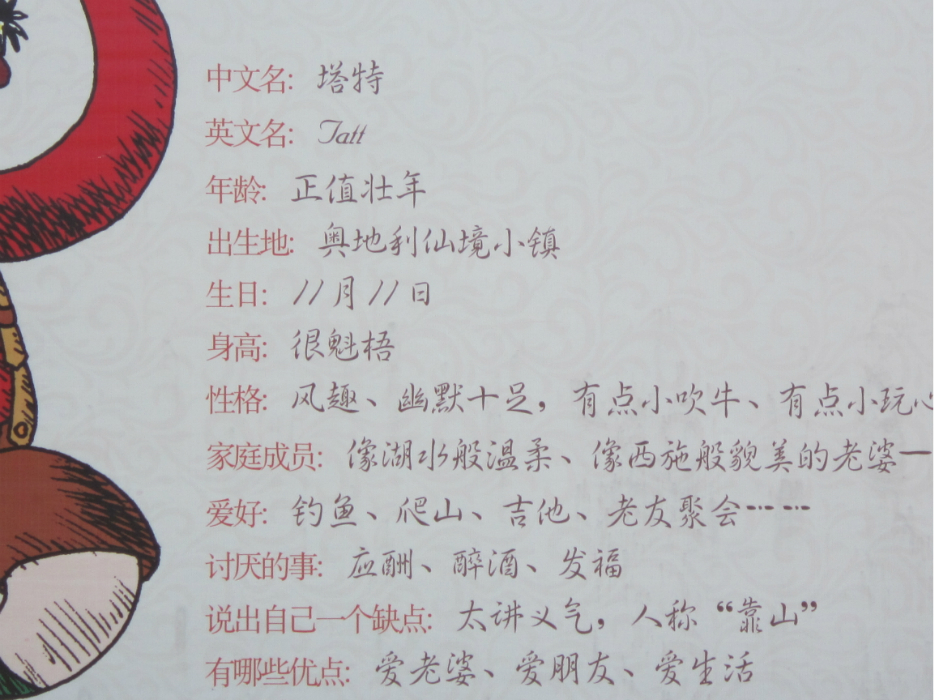 中文名: 塔特
英文名: Tatt
年龄: 正值壮年
出生地: 奥地利仙境小镇
生日: 11月11日
身高: 很魁梧
性格: 风趣、幽默十足，有点小吹牛、有点小玩心
家庭成员: 像湖水般温柔、像西施般貌美的老婆一
爱好: 钓鱼、爬山、吉他、老友聚会……
讨厌的事: 应酬、醉酒、发福
说出自己一个缺点: 太讲义气，人称“靠山”
有哪些优点: 爱老婆、爱朋友、爱生活